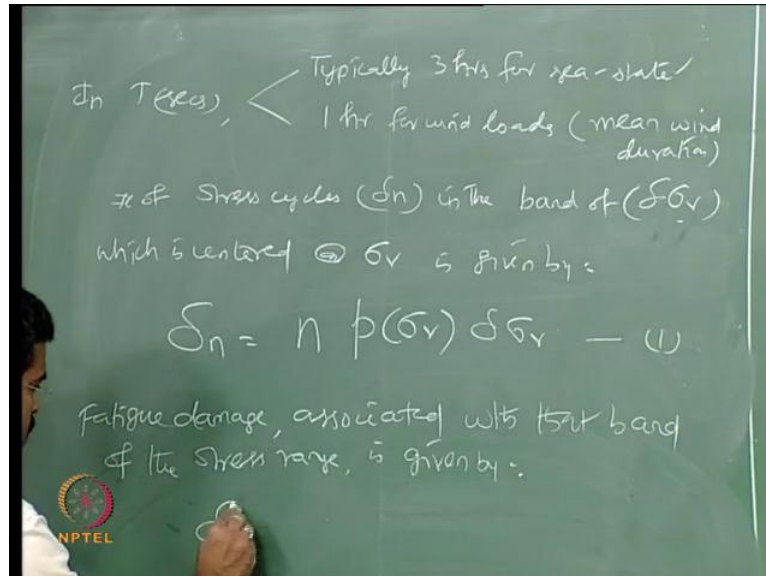 In T(secs), < Typically 3 hrs for sea-state
1 hr for wind loads (mean wind
duration)
# of stress cycles (δn) in the band of (δσr)
which is centered @ σr is given by:
δn = n p(σr) δσr — (1)
Fatigue damage, associated with that band
of the stress range, is given by:
NPTEL